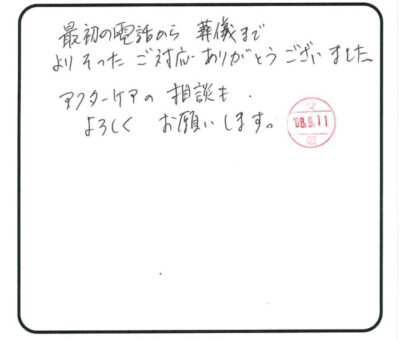 最初の電話から 葬儀まで
よりそった ご対応ありがとうございました
アフターケアの 相談も
よろしく お願いします。
08.9.11